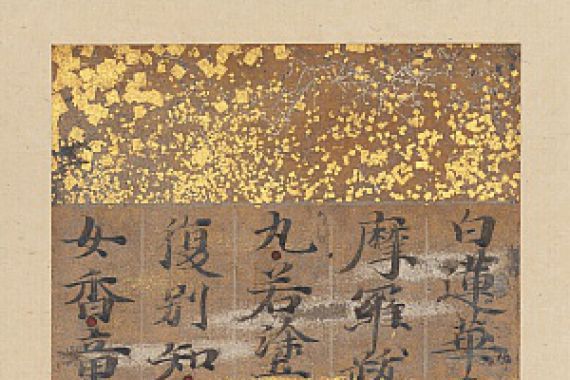 白蓮華
摩羅跋
丸若塗
復別知
女香童